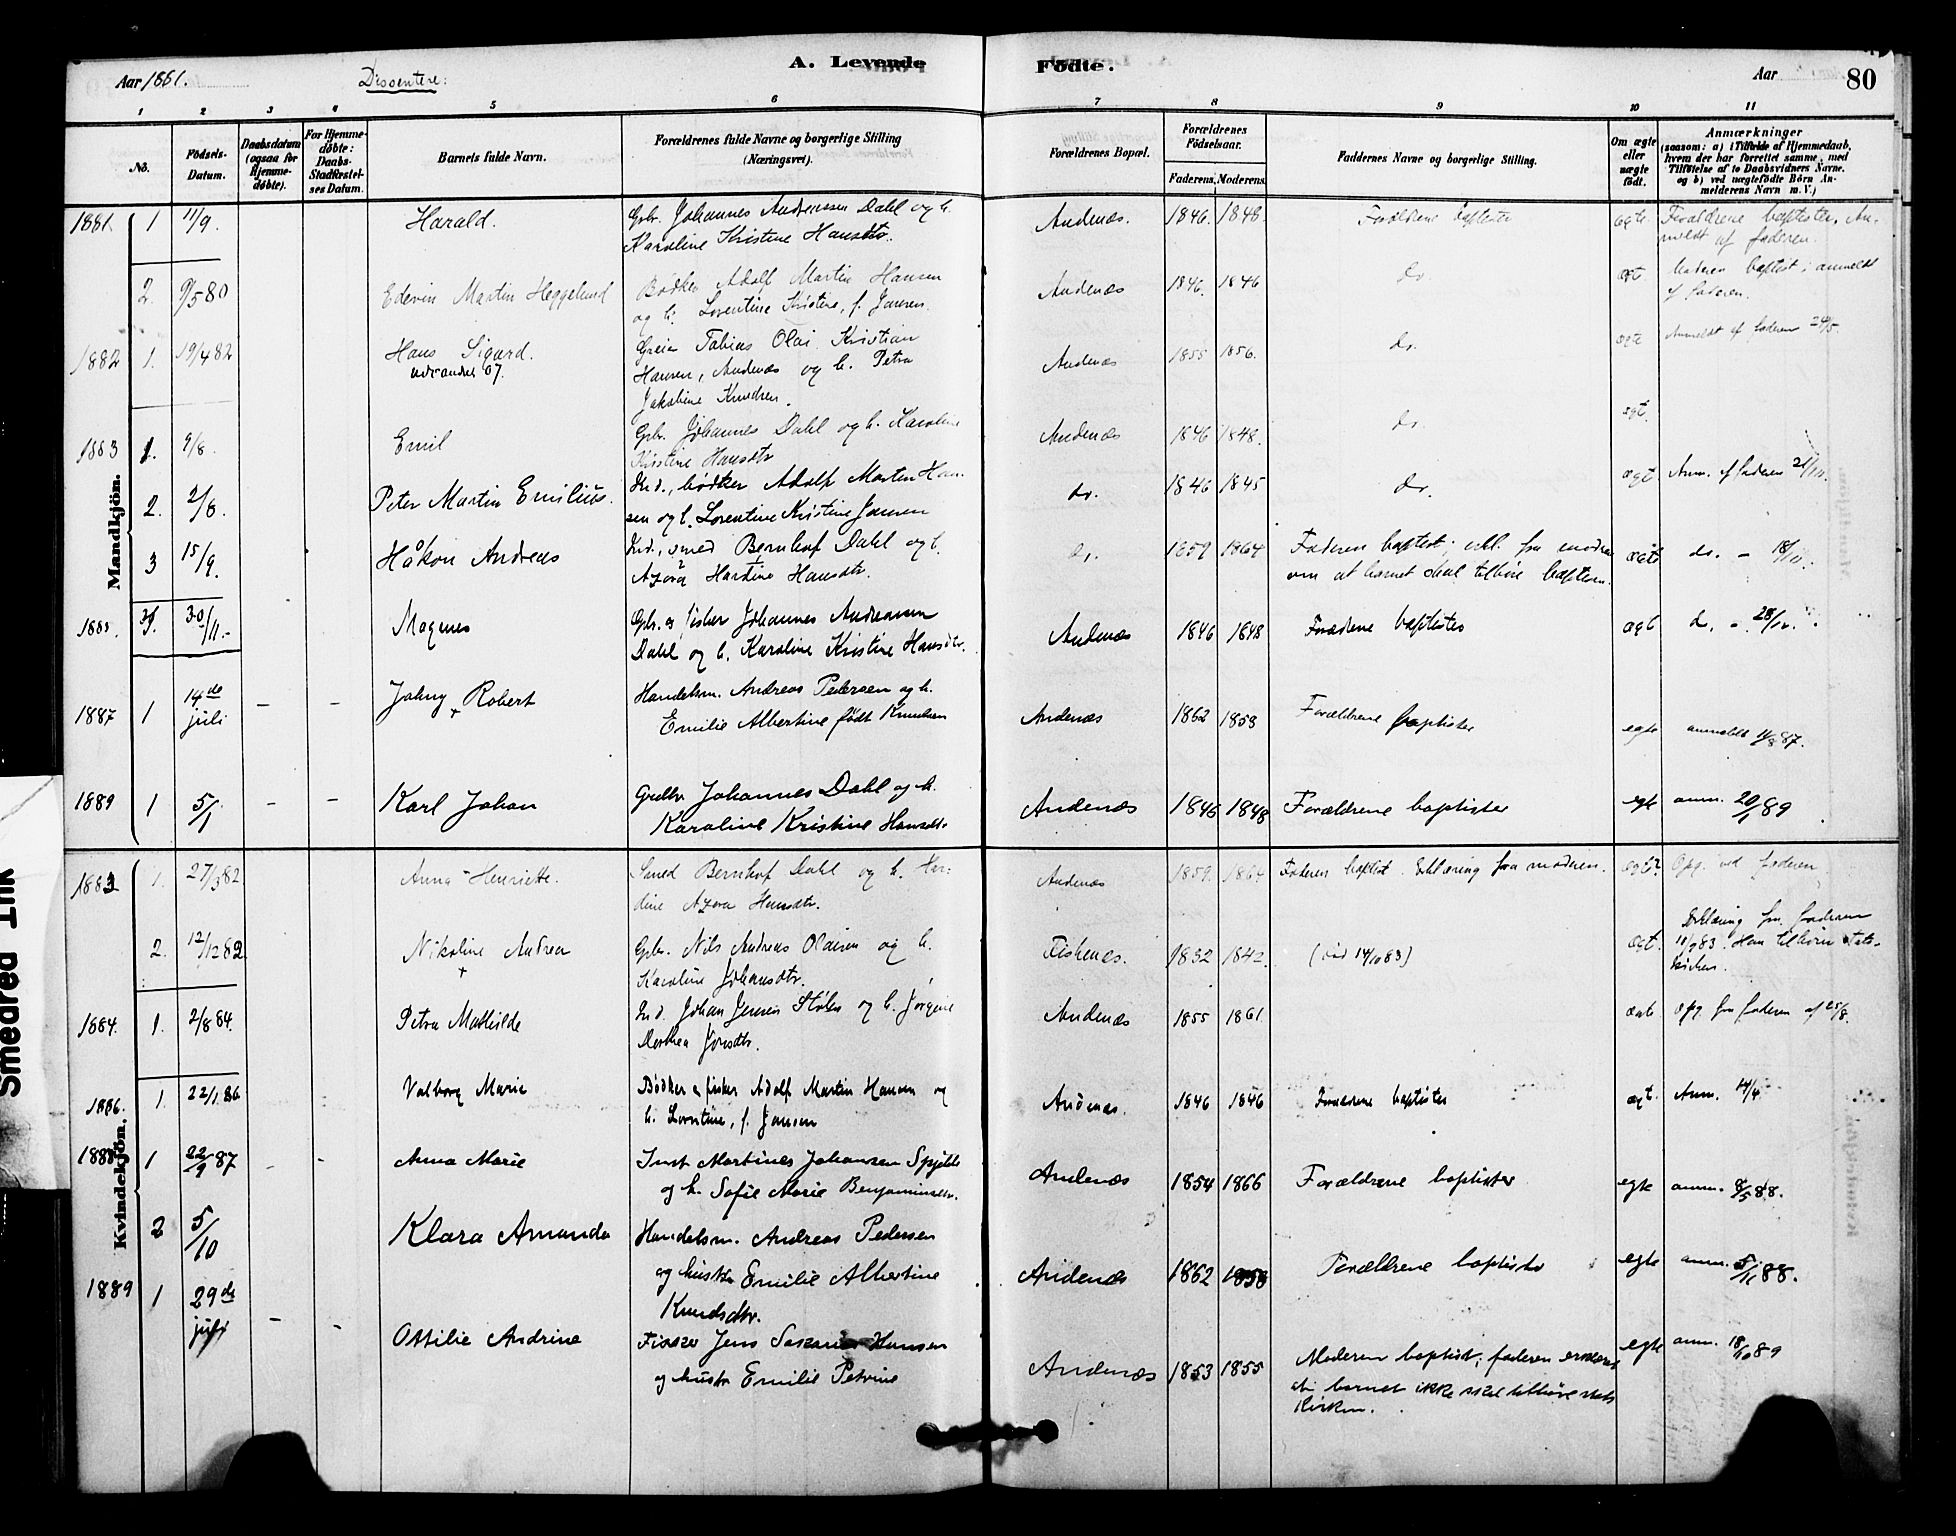 Aar 1881. Dissentere: A. Levende Fødte. Aar 80
1 2 3 4 5 6 7 8 9 10 11
No. Fødsels-Datum. Daabsdatum (ogsaa for Hjemmedøbte). For Hjemmedøbte: Daabs-Stadfæstelses Datum. Barnets fulde Navn. Forældrenes fulde Navne og borgerlige Stilling (Næringsvei). Forældrenes Bopæl. Forældrenes Fødselsaar. Faderens. Moderens. Faddernes Navne og borgerlige Stilling. Om ægte eller uægte født. Anmærkninger (saasom: a) i Tilfælde af Hjemmedaab, hvem der har forrettet samme, med Tilføielse af to Daabsvidners Navne. og b) ved uægtefødte Børn Anmelderens Navn m. V.)
Mandkjön.
1881. 1 11/9. Harald. Gbr. Johannes Andreassen Dahl og h. Andenæs. 1846. 1848. Forældrene baptister ægte. Forældrene baptister. An-
Karoline Kristine Hansdtr. meldt af faderen.
2. 9/5 80 Edevin Martin Heggelund Bødker Adolf Martin Hansen Andenæs 1846. 1846 do. ægt. Moderen baptist; anmeldt
og h. Lorentine Kristine, f. Jansen. af faderen.
1882 1. 19/4 82 Hans Sigard. Tobias Olai Kristian Andenæs 1855 1856. do. ægte Anmeldt af faderen 24/5.
Hansen, Andenæs og h. Petra
Jakobine Knudsen.
1883 1. 9/8. Emil Gbr. Johannes Dahl og h. Karoline Andenæs 1846 1848. do. ægt.
Kristine Hansdtr
2. 2/8. Peter Martin Emilius. Ind., bødker Adolf Martin Han- do. 1846 1845 do. ægt Anm. af faderen
sen og h. Lorentine Kristine Jansen
3 15/9. Håkon Andreas Ind., smed Bernhof Dahl og h. do. 1859 1864 Faderen baptist; erkl. fra moderen ægte do. -
Azora Hardine Hansdtr. om at barnet skal tilhøre baptism.
1885. 30/11.- Magnus Gbr. og fisker Johannes Andreasen Andenæs 1846 1848 Forældrene baptister ægt do. -
Dahl og h. Karoline Kristine Hansdtr.
1887 1 14de juli – – Johny + Robert Handelsm. Andreas Pedersen og h. Andenæs 1862 1858 Forældrene baptister egte anmeldt 11/8 87.
Emilie Albertine født Knudsen
1889 1 5/1 – – Karl Johan Grdbr Johannes Dahl og h. Andenæs 1846 1848 Forældrene baptister egte anm. 20/1 89
Karoline Kristine Hansdtr
Kvindekjön.
1883 1. 27/3 82 Anna Henriette. Smed Bernhof Dahl og h. Har- Andenæs 1859. 1864. Faderen baptist. Erklæring fra moderen. Opg. ved faderen.
dine Azora Hansdtr.
2. 12/12 82 Nikoline Andrea + Gbr. Nils Andreas Olaisen og h. Fiskenæs. 1832 1842. (død 14/10 83) ægt. Erklæring fra faderen
Karoline Johansdtr. 83. Han tilhører Stats-
kirken.
1884. 1. 2/8 84. Petra Mathilde Ind. Johan Jensen og h. Jørgine Andenæs 1855 1861. Opg. fra faderen af 25/8.
Dorthea
1886. 1. 22/1 86 Valborg Marie Bødker og fisker Adolf Martin Hansen og Andenæs. 1846 1846 Forældrene baptister ægt. Anm. 14/4
h. Lorentine, f. Jansen
1888 1 22/9 87 - - Anna Marie Inst Martines Johansen Spjelde Andenæs 1854 1866 Forældrene baptister egte anm. 8/5 88.
og h. Sofie Marie Benjaminsdtr.
2 5/10 Klara Amanda Handelsm. Andreas Pedersen Andenæs 1862 1858 Forældrene baptister egte anm. 5/11 88.
og hustr Emilie Albertine
Knudsdtr.
1889 1 29de juli – – Ottilie Andrine Fisker Jens Hansen Andenæs 1853 1855 Moderen baptist; faderen erklæret egte anm. 18/10 89
og hustr Emilie Petrine at barnet ikke skal tilhøre stats
kirken.
Smedred Ink